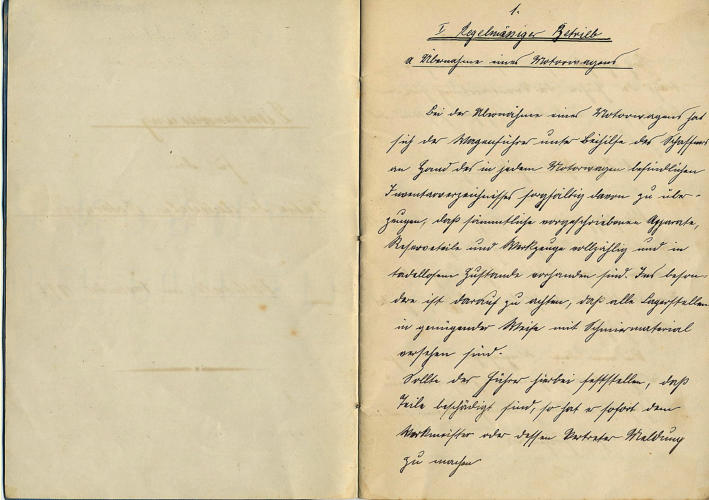 1.
I Regelmäsiger Betrieb
a Übernahme eines Motorwagens
Bei der Übernahme eines Motorwagens hat
sich der Wagenführer unter Beihilfe des Schaffners
an Hand des in jedem Motorwagen befindlichen
Inventarverzeichnisses sorgfältig davon zu über-
zeugen, daß sämmtliche vorgeschriebenen Apparate,
Reserveteile und Werkzeuge vollzählig und in
tadellosem Zustande vorhanden sind. Ins beson-
dere ist darauf zu achten, daß alle Lagerstellen
in genügender Weise mit Schmiermaterial
versehen sind.
Sollte der Führer hierbei feststellen, daß
Teile beschädigt sind, so hat er sofort dem
Werkmeister oder dessen Vertreter Meldung
zu machen